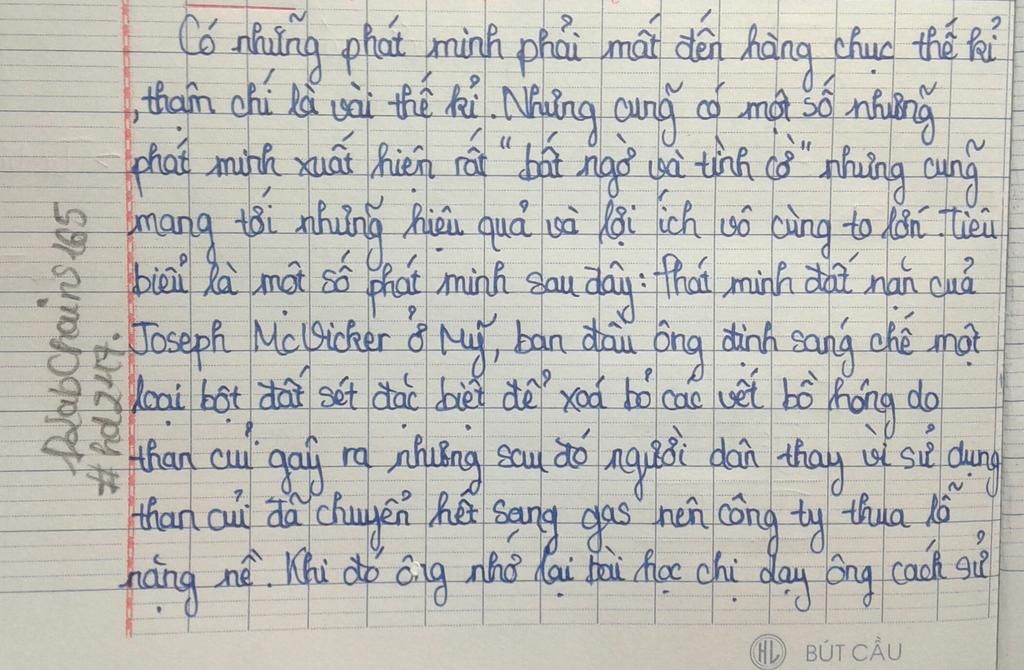 Có những phát minh phải mất đến hàng chục thế kỉ
, thậm chí là vài thế kỉ. Nhưng cũng có một số những
phát minh xuất hiện rất "bất ngờ và tình cờ" nhưng cũng
mang tới những hiệu quả và lợi ích vô cùng to lớn. Tiêu
biểu là một số phát minh sau đây: Phát minh đất nặn của
Joseph McVicker ở Mỹ, ban đầu ông định sáng chế một
loại bột đất sét đặc biệt để xoá bỏ các vết bồ hóng do
than củi gây ra nhưng sau đó người dân thay vì sử dụng
than củi đã chuyển hết sang gas nên công ty thua lỗ
nặng nề. Khi đó ông nhớ lại bài học chị dạy ông cách sử
#hd247.
HL BÚT CẦU